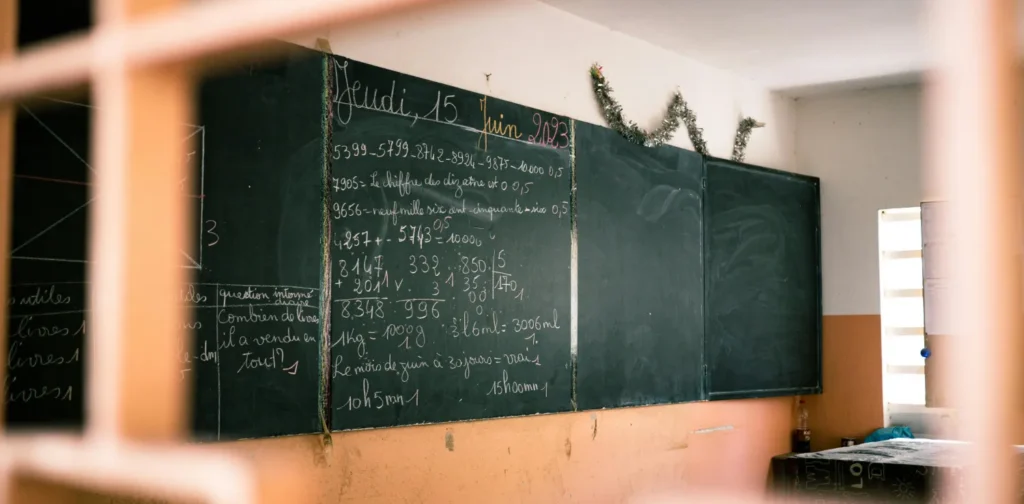 3
utiles
livres 1
livres 1
ivres 1
question interm
diaire
Combien de livres
il a vendu en
tout? 1
Jeudi, 15 Juin 2023
5399_5799_8742_8924_9875_10.000 0,5
7905= Le chiffre des dizaine est 0 0,5
9656=neuf mille six cent cinquante-six 0,5
4257 + - 5743 = 10000
0,5
8147 332 850 5
+ 201 1 x 3 1 35 170
00 1
8.348 996 0
1Kg = 1000g 3l 6ml = 3006ml
1 1
Le mois de juin à 30 jours = vrai 1
10h5mn 1 15h00mn 1
LO